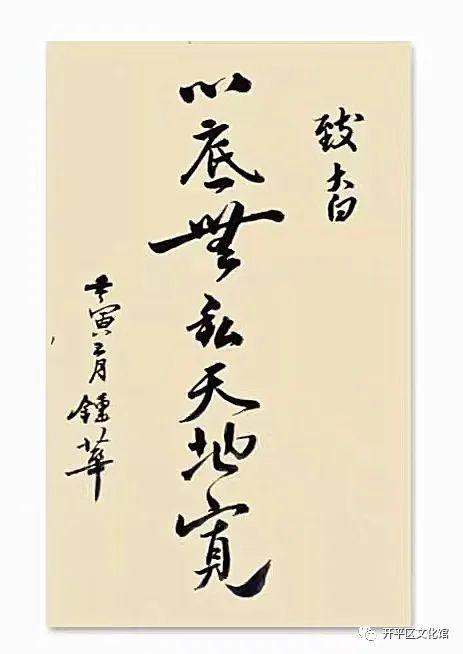 致大白
心底無私天地寬
壬寅三月鍾華
开平区文化馆